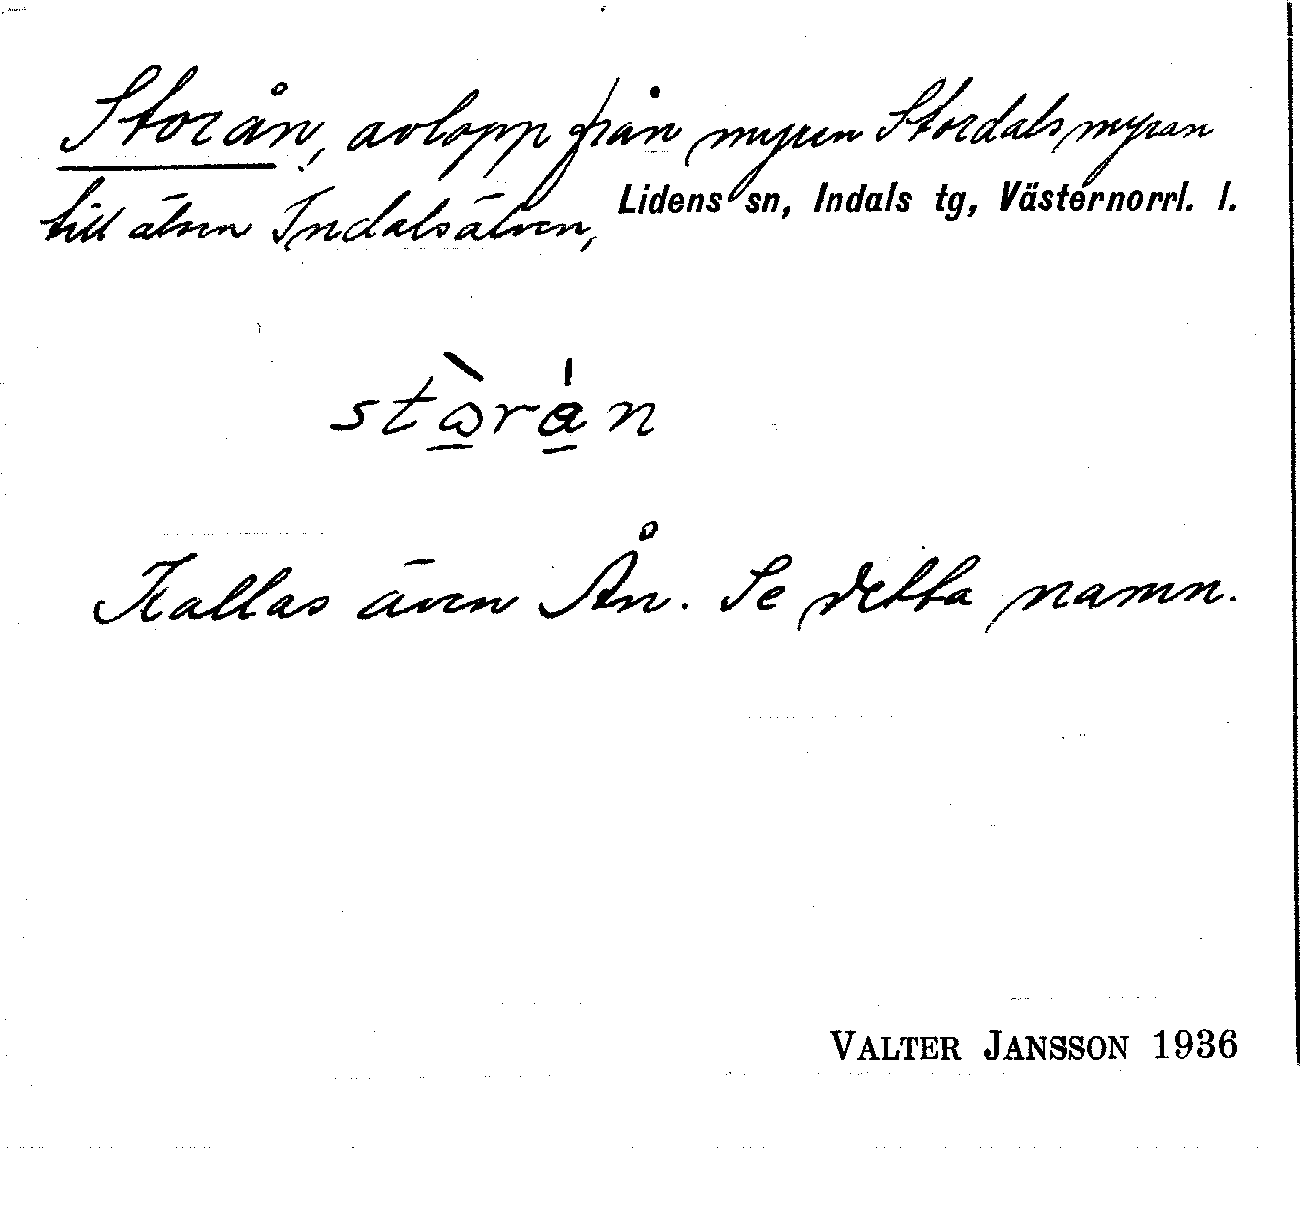 Storån, avlopp från myren Stordalsmyran
till älven Indalsälven, Lidens sn, Indals tg, Västernorrl. l.
Kallas även Ån. Se detta namn.
VALTER JANSSON 1936